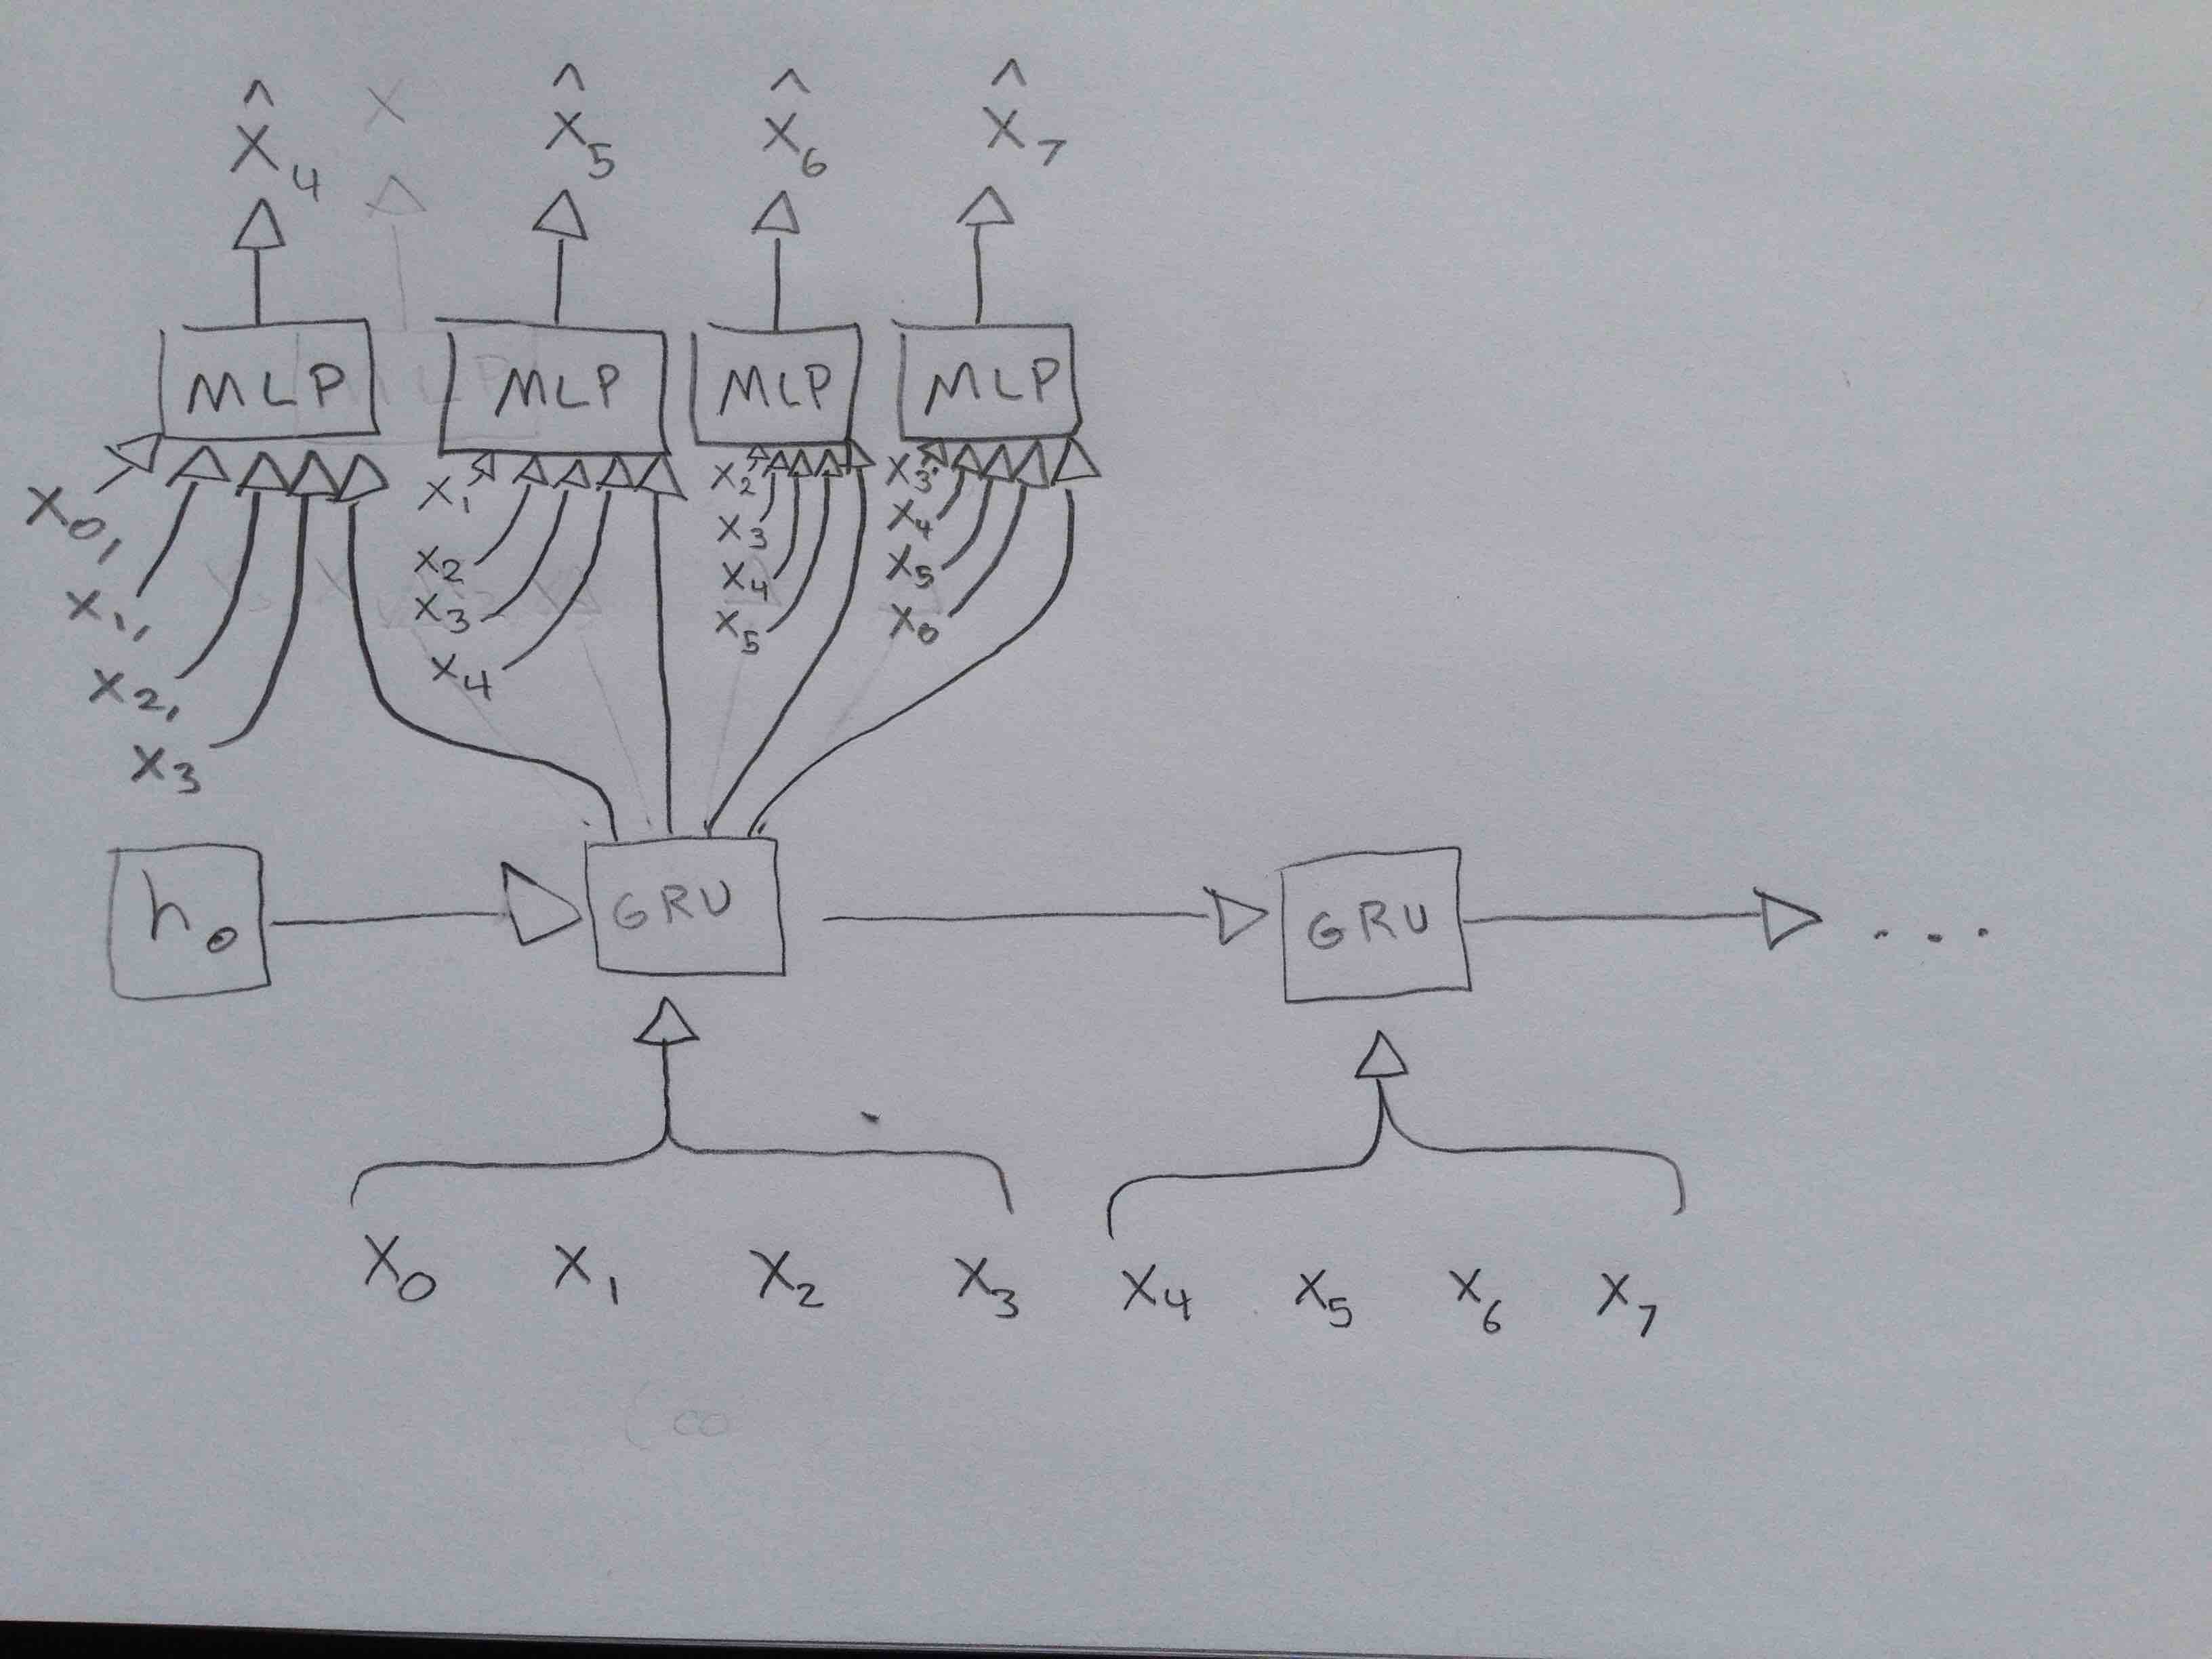 ^ ^ ^ ^
X4 X X5 X6 X7
MLP MLP MLP MLP
X0, X1 X2 X3
X1, X2 X3 X4
X2, X3 X4 X5
X3 X4 X5 X6
h0 GRU GRU ...
X0 X1 X2 X3 X4 X5 X6 X7